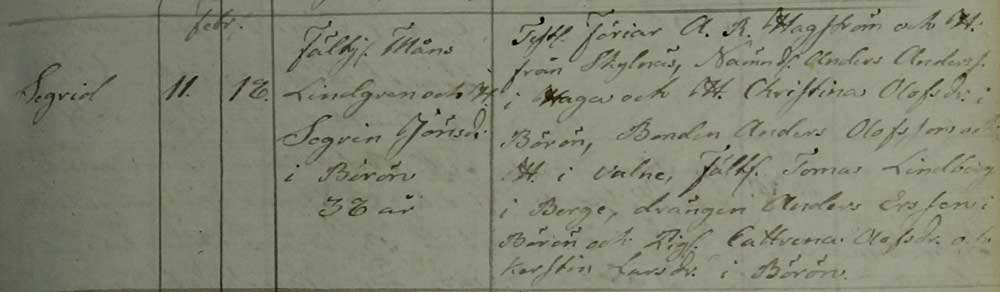 febr.
Segrid 11. 18.
Fältj. Måns
Lindgren och H.
Segrin Jönsdr.
i Börön
38 år
Testl. Föriar A. R. Hagström och H.
från Skylnäs, Nämnd. Anders Anderss.
i Haga och H. Christina Olofsdr. i
Börön, Bonden Anders Olofsson och
H. i Valne, Fältj. Tomas Lindberg
i Berge, drängen Anders Ersson i
Börön och Pigs. Cattrena Olofsdr. och
Kerstin Larsdr. i Börön.